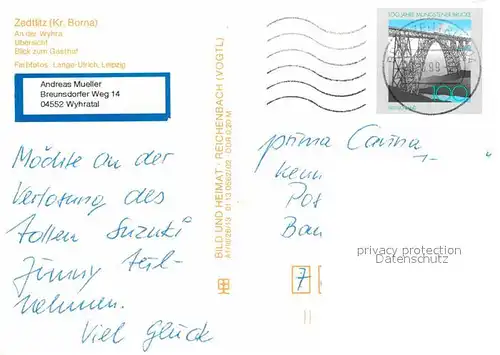 Zedtlitz (Kr. Borna)
An der Wyhra
Übersicht
Blick zum Gasthof
Farbfotos: Lange-Ulrich, Leipzig
Andreas Mueller
Breunsdorfer Weg 14
04552 Wyhratal
Möchte an der
Verlosung des
tollen Suzuki
Jimny teil-
nehmen.
Viel Glück
BILD UND HEIMAT · REICHENBACH (VOGTL)
100 JAHRE MÜNGSTENER BRÜCKE
100
prima Carina
Kenn
Pos
Bau
7
privacy protection
Datenschutz